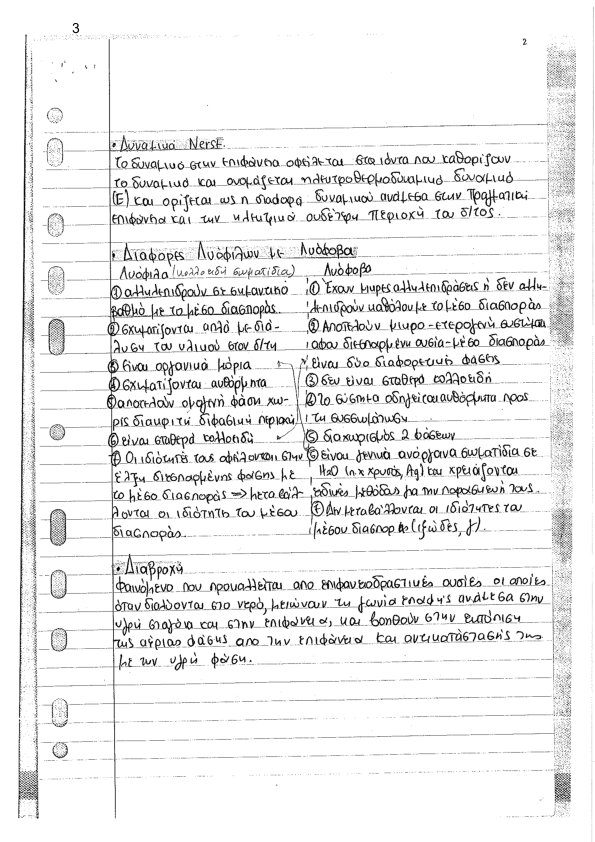 3
2
• Δυναμικό Nerst.
Το δυναμικό στην επιφάνεια οφείλεται στα ιόντα που καθορίζουν
το δυναμικό και ονομάζεται ηλεκτροθερμοδυναμικό δυναμικό
(Ε) και ορίζεται ως η διαφορά δυναμικού ανάμεσα στην πραγματική
επιφάνεια και την ηλεκτρικά ουδέτερη περιοχή του δ/τος.
• Διαφορές Λυόφιλων με Λυόφοβα
Λυόφιλα (κολλοειδή σωματίδια) Λυόφοβα
① αλληλεπιδρούν σε σημαντικό ① Έχουν μικρές αλληλεπιδράσεις ή δεν αλλη-
βαθμό με το μέσο διασποράς λεπιδρούν καθόλου με το μέσο διασποράς
② σχηματίζονται απλά με διά- ② Αποτελούν μικρο-ετερογενή συστήματα
λυση του υλικού στον δ/τη αφού διεσπαρμένη ουσία-μέσο διασποράς
③ Είναι οργανικά μόρια είναι δύο διαφορετικές φάσεις
④ σχηματίζονται αυθόρμητα ③ δεν είναι σταθερά κολλοειδή
⑤ αποτελούν ομογενή φάση χω- ④ το σύστημα οδηγείται αυθόρμητα προς
ρίς διακριτή διφασική περιοχή τη συσσωμάτωση
⑥ είναι σταθερά κολλοειδή ⑤ διαχωρισμός 2 φάσεων
⑦ Οι ιδιότητές τους οφείλονται στην ⑥ είναι γενικά ανόργανα σωματίδια σε
έλξη διεσπαρμένης φάσης με H₂O (π.χ χρυσός, Ag) και χρειάζονται
το μέσο διασποράς ⟹ μεταβάλ- ειδικές μεθόδους για την παρασκευή τους.
λονται οι ιδιότητες του μέσου ⑦ Δεν μεταβάλλονται οι ιδιότητες του
διασποράς. μέσου διασποράς (ιξώδες, γ).
• Διαβροχή
Φαινόμενο που προκαλλείται από επιφανειοδραστικές ουσίες οι οποίες
όταν διαλύονται στο νερό, μειώνουν τη γωνία επαφής ανάμεσα στην
υγρή σταγόνα και στην επιφάνεια, και βοηθούν στην εκτόπιση
της αέριας φάσης από την επιφάνεια και αντικατάστασής της
με την υγρή φάση.